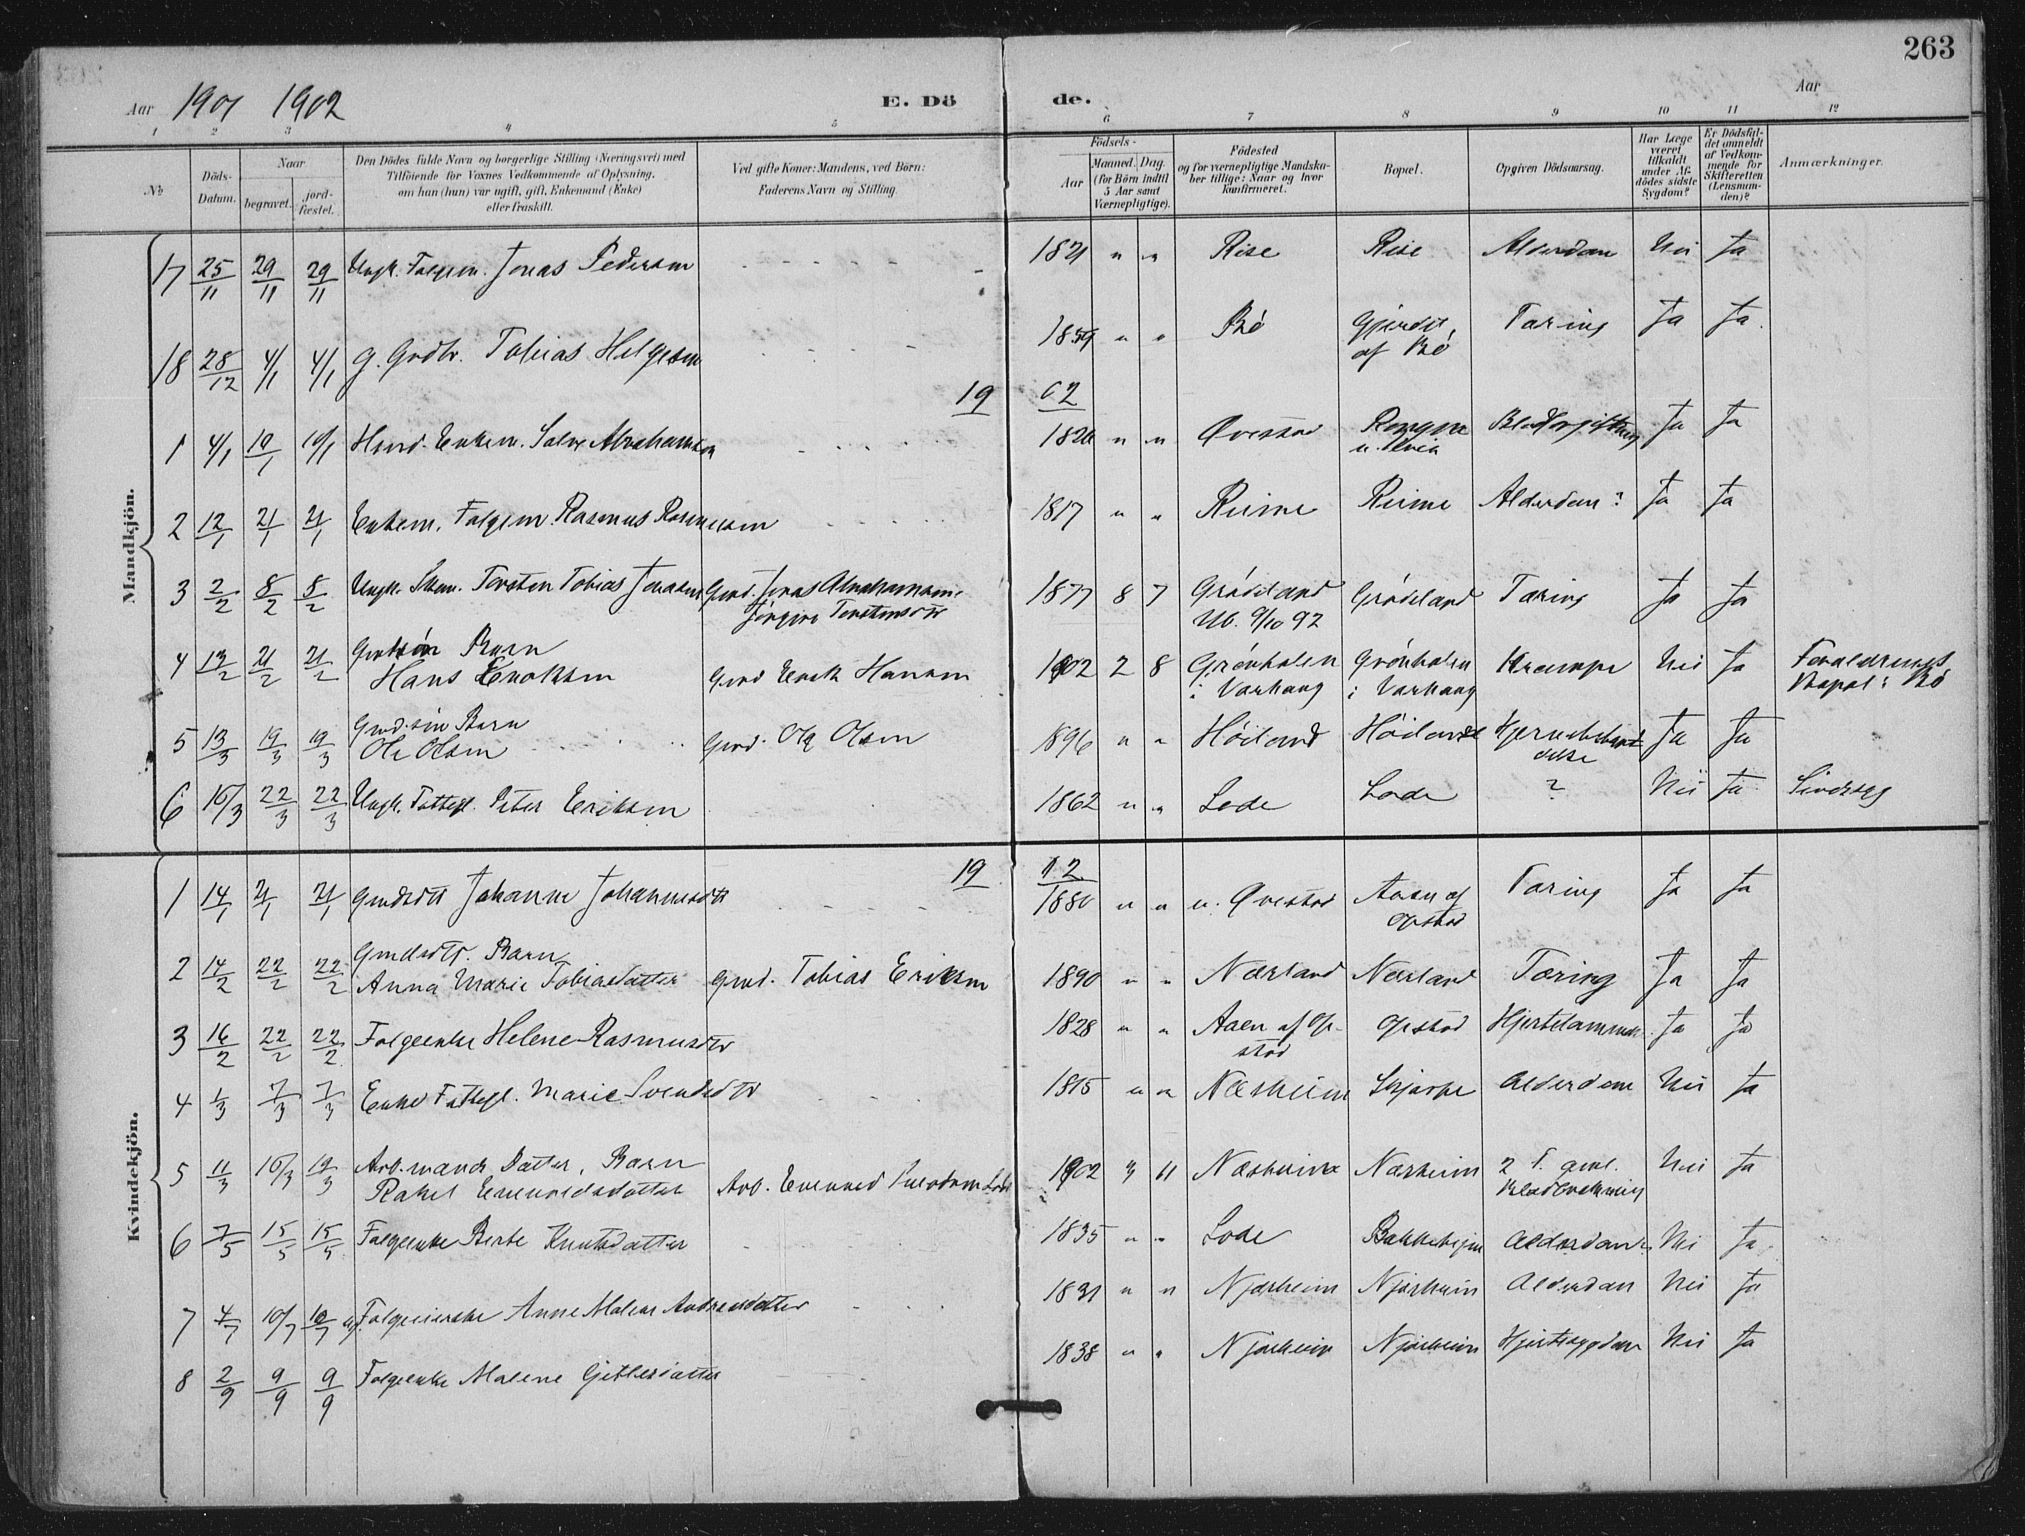 263
Aar 1901 1902 E. Dö de. Aar
1 2 3 4 5 6 7 8 9 10 11 12
No
Döds-Datum.
Naar
begravet.
jord-fæstet.
Den Dödes fulde Navn og borgerlige Stilling (Næringsvei) med
Tilföiende for Voxnes Vedkommende af Oplysning,
om han (hun) var ugift, gift, Enkemand (Enke)
eller fraskilt.
Ved gifte Koner: Mandens, ved Börn:
Faderens Navn og Stilling.
Födsels-
Aar
Maaned. Dag.
(for Börn indtil
5 Aar samt
Værnepligtige).
Födested
og for værnepligtige Mandska-
ber tillige: Naar og hvor
konfirmeret.
Bopæl.
Opgiven Dödsaarsag.
Har Læge
været
tilkaldt
under Af-
dödes sidste
Sygdom?
Er Dödsfal-
det anmeldt
af Vedkom-
mende for
Skifteretten
(Lensman-
den)?
Anmærkninger.
Mandkjön.
17 25/11 29/11 29/11 Ungk. Folgem. Jonas Pedersen 1821 " " Rise Rise Alderdom Nei Ja
18 28/12 4/1 4/1 G. Grdbr. Tobias Helgesen 1859 " " Bö Gjerdet Tæring Ja Ja
af Bö
19 02
1 4/1 10/1 10/1 Huusm. Enkem. Salve Abrahamsen 1826 " " Qvestad Blodforgiftning Ja Ja
2 12/1 21/1 21/1 Enkem. Folgem. Rasmus Rasmussen 1817 " " Reime Reime Alderdom? Ja Ja
3 2/2 8/2 8/2 Ungk. Torsten Tobias Jonassen Gmd. Jonas Abrahamsen 1877 8 7 Grödeland Grödeland Tæring Ja Ja
Torstensdtr
4 13/2 21/2 21/2 Gmdsön Barn
Hans Enoksen Gmd Enok Hansen 1902 2 8 Grönhalen Grönhalen Krampe Nei Ja Forældrenes
i Varhaug i Varhaug Bopæl: Bö
5 13/3 19/3 19/3 Gmd.sön Barn
Ole Olsen Gmd. Ole Olsen 1896 " " Höiland Höiland Ja Ja
6 16/3 22/3 22/3 Ungk. Fattigl. Peter Eriksen 1862 " " Lode Lode ? Nei Ja Sindssyg
Kvindekjön.
19 02
1 14/1 21/1 21/1 Gmdsdtr Johanne Johannesdtr 1880 " " n. Qvestad Aaen af Tæring Ja Ja
Opstad
2 14/2 22/2 22/2 Gmdsdtr. Barn
Anna Marie Tobiasdatter Gmd. Tobias Eriksen 1890 " " Nærland Nærland Tæring Ja Ja
3 16/2 22/2 22/2 Folgeenke Helene Rasmusdtr 1828 " " Aaen af Op- Opstad Hjertelammelse Ja Ja
stad
4 1/3 7/3 7/3 Enke Fattigl. Marie Svendsdtr 1815 " " Næsheim Skjærpe Alderdom Nei Ja
5 11/3 16/3 19/3 Arb.mands Datter, Barn
Rakel 1902 3 11 Nærheim Nærheim Nei Ja
6 7/5 15/5 15/5 Folgeenke Berte Knutsdatter 1835 " " Lode Alderdom Nei Ja
7 4/7 10/7 10/7 Anne Malene Andreasdatter 1831 " " Njærheim Njærheim Alderdom Nei Ja
8 2/9 9/9 9/9 Folgeenke Malene Gitlesdatter 1838 " " Njærheim Njærheim Hjertesygdom Nei Ja